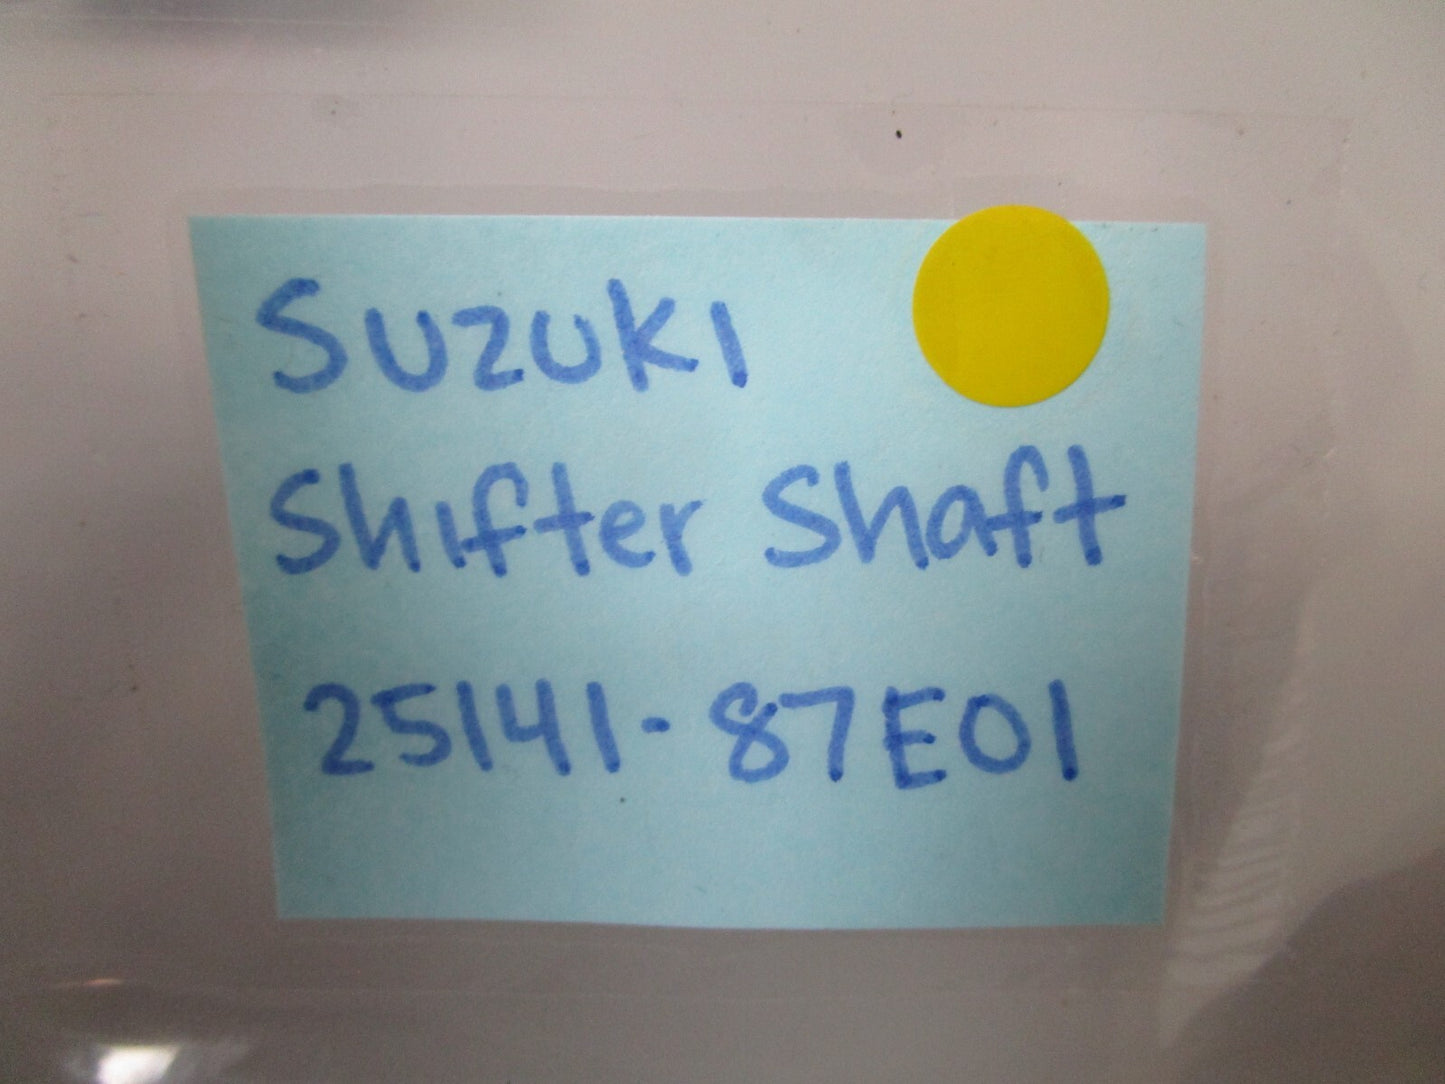 Suzuki
Shifter Shaft
25141-87E01